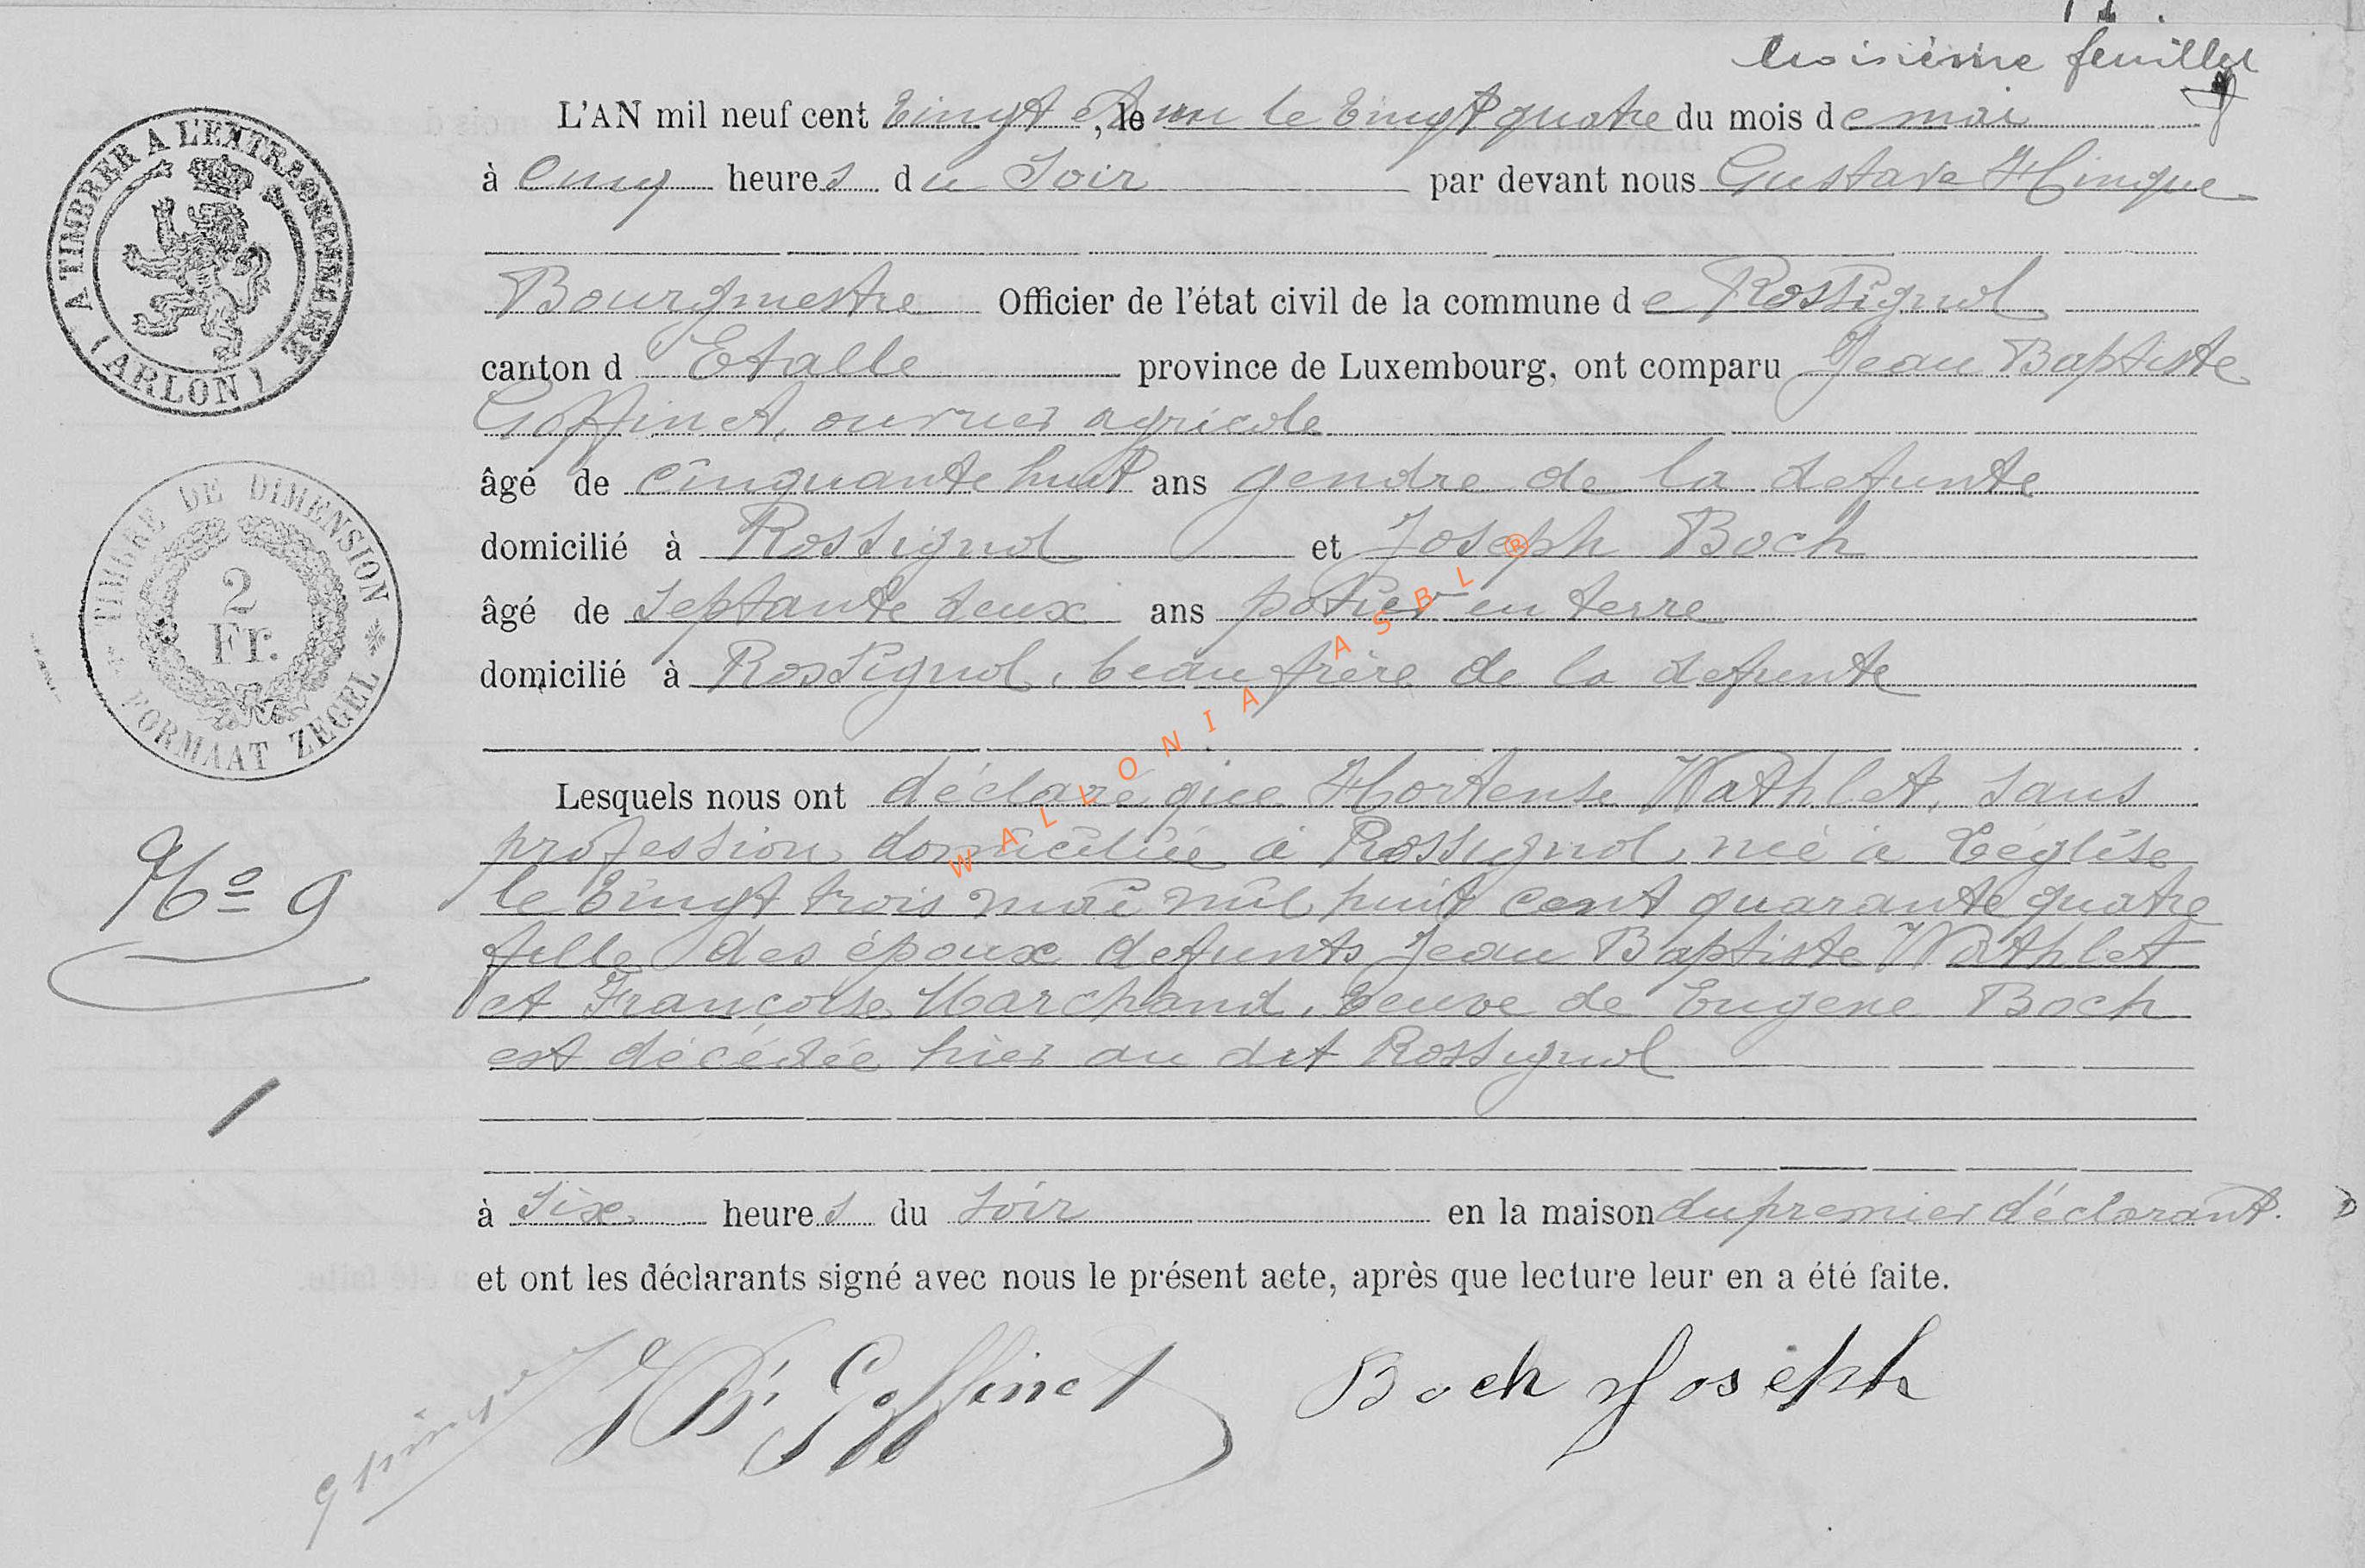 troisième feuillet
L'AN mil neuf cent vingt et un, le vingt quatre du mois de mai
à cinq heures du soir par devant nous Gustave Hinque
Bourgmestre Officier de l'état civil de la commune de Rossignol
canton d Etalle province de Luxembourg, ont comparu Jean Baptiste
Goffinet, ouvrier agricole
âgé de cinquante huit ans gendre de la defunte
domicilié à Rossignol et Joseph Boch
âgé de septante deux ans potier en terre
domicilié à Rossignol, beau frère de la defunte
Lesquels nous ont déclaré que Hortense Wathlet, sans
profession domiciliée à Rossignol, née à Léglise
le vingt trois mai mil huit cent quarante quatre
fille des époux defunts Jean Baptiste Wathlet
et Françoise Marchand, veuve de Eugene Boch
est décédée hier au dit Rossignol
à six heures du soir en la maison du premier déclarant.
et ont les déclarants signé avec nous le présent acte, après que lecture leur en a été faite.
JBte Goffinet Boch Joseph
A TIMBRER A L'EXTRAORDINAIRE
(ARLON)
TIMBRE DE DIMENSION
2
Fr.
FORMAAT ZEGEL
No 9
WALLONIA ASBL ®